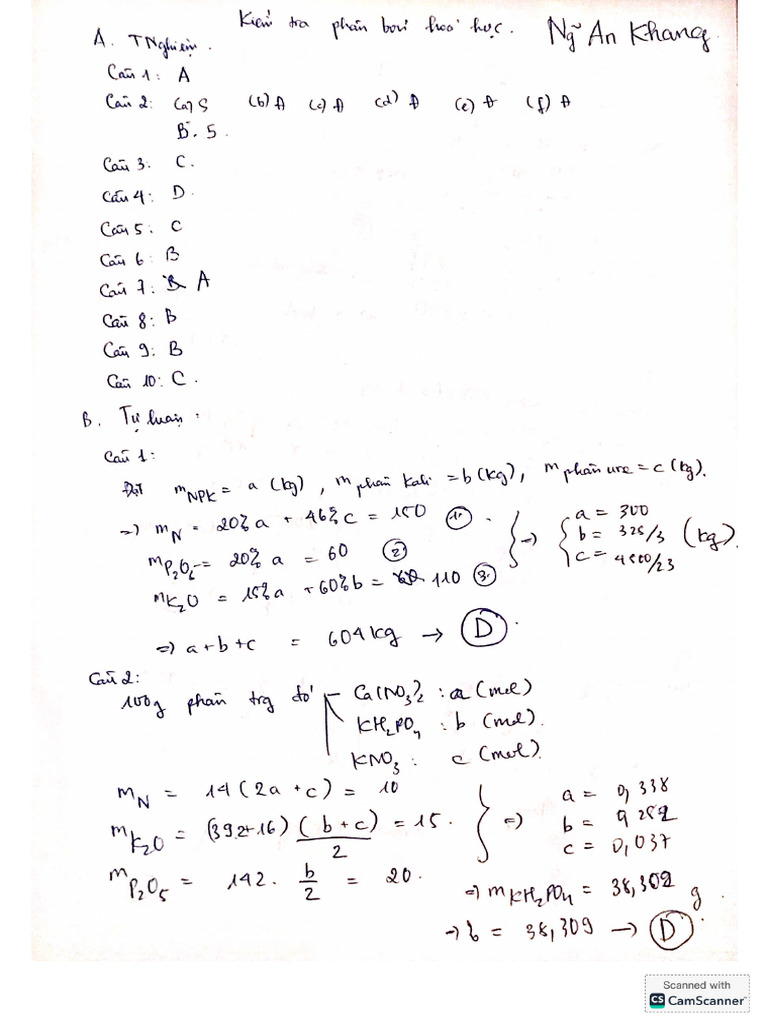 Kiểm tra phân bón hoá học. Ng~ An Khang
A. TNghiệm.
Câu 1: A
Câu 2: (a) S (b) Đ (c) Đ (d) Đ (e) Đ (f) Đ
B. 5.
Câu 3: C.
Câu 4: D.
Câu 5: C
Câu 6: B
Câu 7: A
Câu 8: B
Câu 9: B
Câu 10: C.
B. Tự luận:
Câu 1:
Đặt m_NPK = a (kg), m phân kali = b (kg), m phân ure = c (kg).
=> m_N = 20% a + 46% c = 150 (1).
m_P2O5 = 20% a = 60 (2)
m_K2O = 15% a + 60% b = 110 (3)
=> { a = 300
b = 325/3
c = 4500/23 (kg).
=> a + b + c = 604 kg → (D).
Câu 2:
100g phân trg đó Ca(NO3)2 : a (mol)
KH2PO4 : b (mol).
KNO3 : c (mol).
m_N = 14 (2a + c) = 10
m_K2O = (39.2+16) (b + c)/2 = 15.
m_P2O5 = 142. b/2 = 20.
=> a = 0,338
b = 0,282
c = 0,037
=> m_KH2PO4 = 38,309 g.
→ b = 38,309 → (D).
Scanned with
CS CamScanner